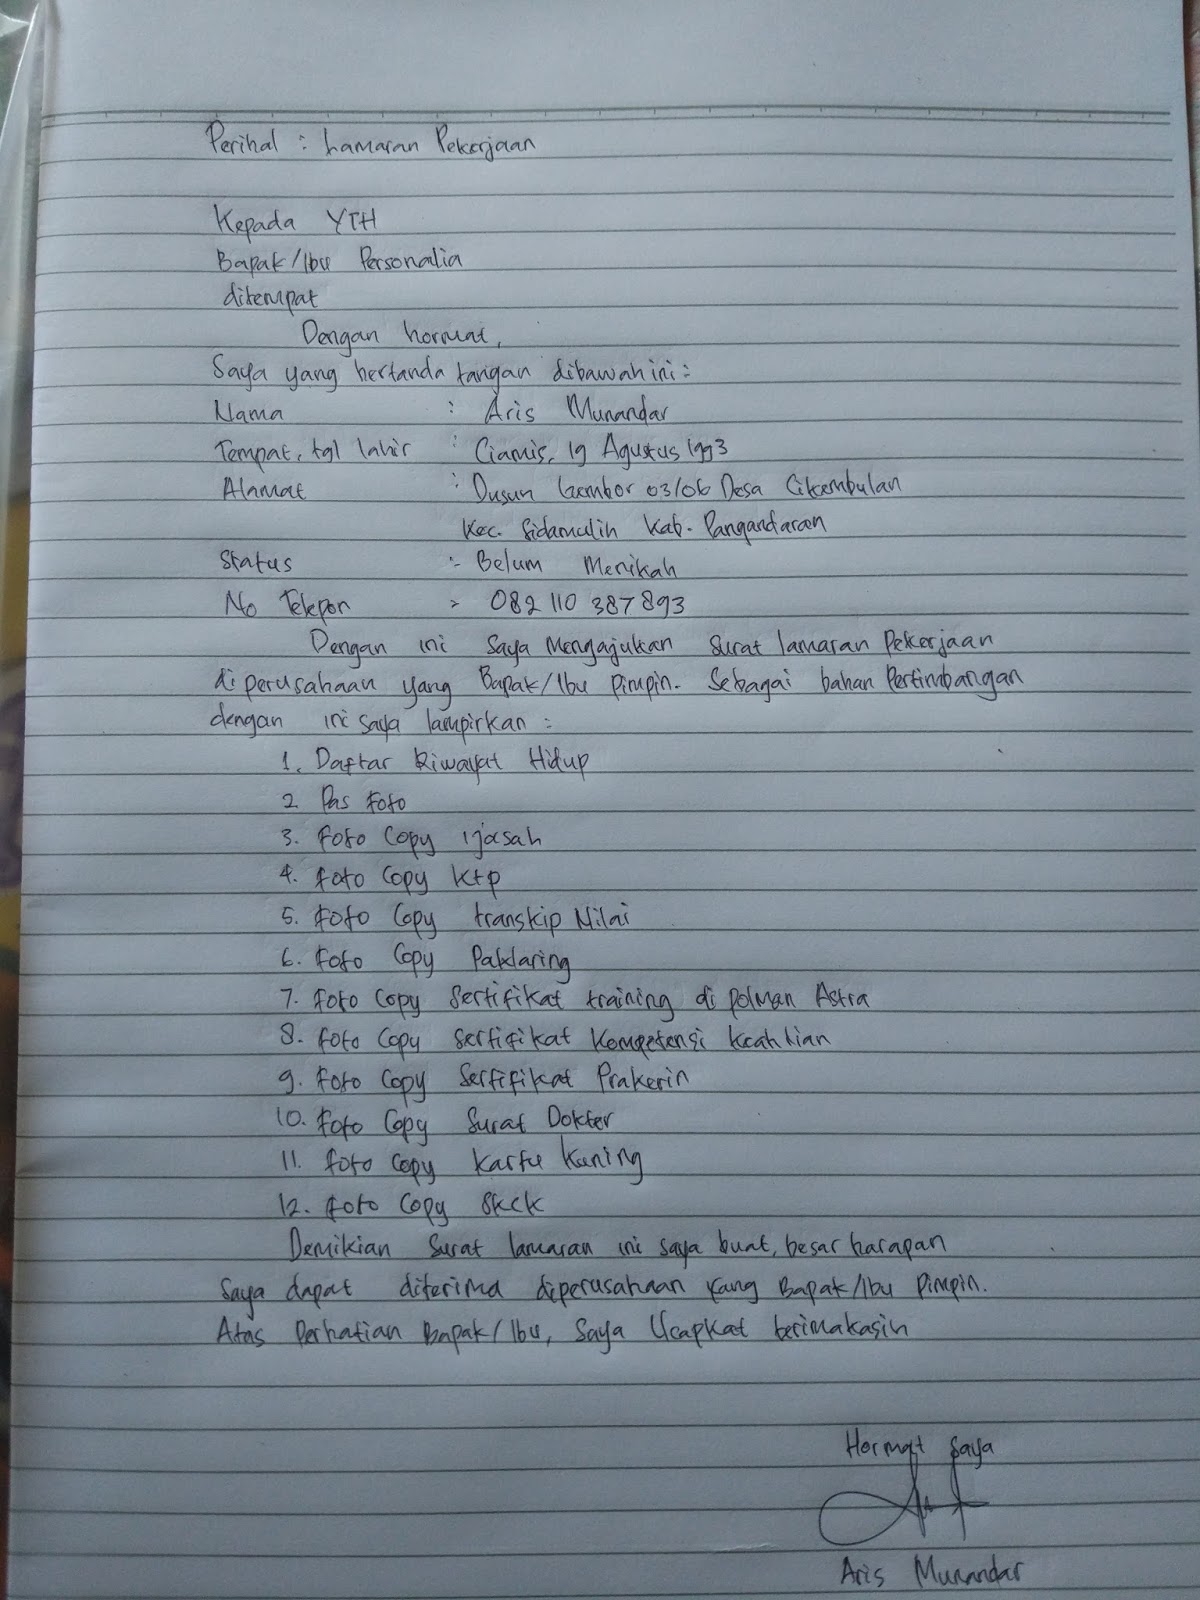 Perihal : Lamaran Pekerjaan
Kepada YTH
Bapak/Ibu Personalia
ditempat
Dengan hormat,
Saya yang bertanda tangan dibawah ini :
Nama : Aris Munandar
Tempat, tgl lahir : Ciamis, 19 Agustus 1993
Alamat : Dusun Gembor 03/06 Desa Cikembulan
Kec. Sidamulih Kab. Pangandaran
Status : Belum Menikah
No Telepon : 082 110 387 893
Dengan ini Saya Mengajukan Surat lamaran Pekerjaan
di perusahaan yang Bapak/Ibu Pimpin. Sebagai bahan Pertimbangan
dengan ini saya lampirkan :
1. Daftar Riwayat Hidup
2 Pas Foto
3. Foto Copy ijasah
4. Foto Copy Ktp
5. Foto Copy transkip Nilai
6. Foto Copy Paklaring
7. Foto Copy Sertifikat training di polman Astra
8. Foto Copy Sertifikat Kompetensi Keahlian
9. Foto Copy Sertifikat Prakerin
10. Foto Copy Surat Dokter
11. Foto Copy Kartu Kuning
12. Foto Copy SKCK
Demikian Surat lamaran ini saya buat, besar harapan
Saya dapat diterima diperusahaan yang Bapak/Ibu Pimpin.
Atas Perhatian Bapak/Ibu, Saya Ucapkat terimakasih
Hormat Saya
Aris Munandar